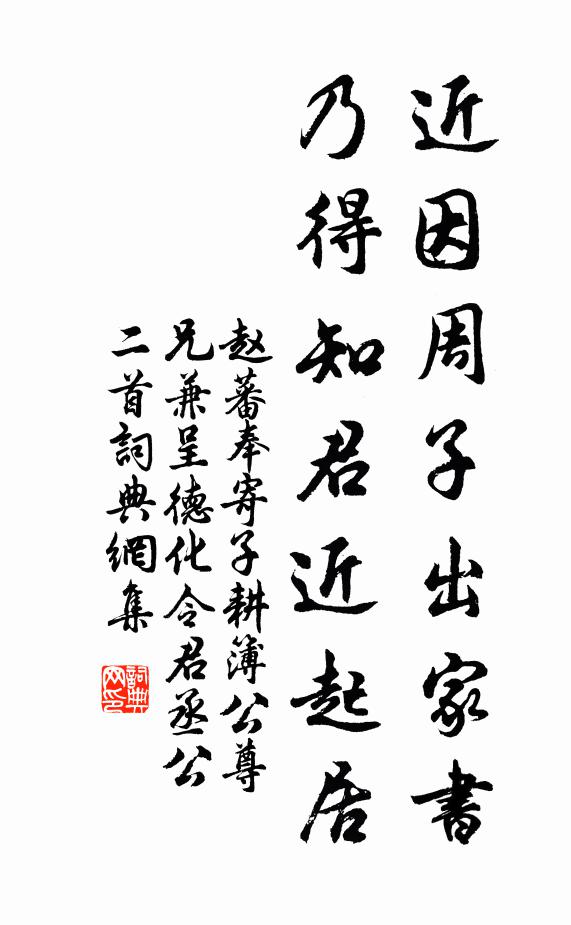 近因周子出家書
乃得知君近起居
赵蕃奉寄子耕簿公尊
兄兼呈德化令君丞公
二首詞典網集
詞典
网印